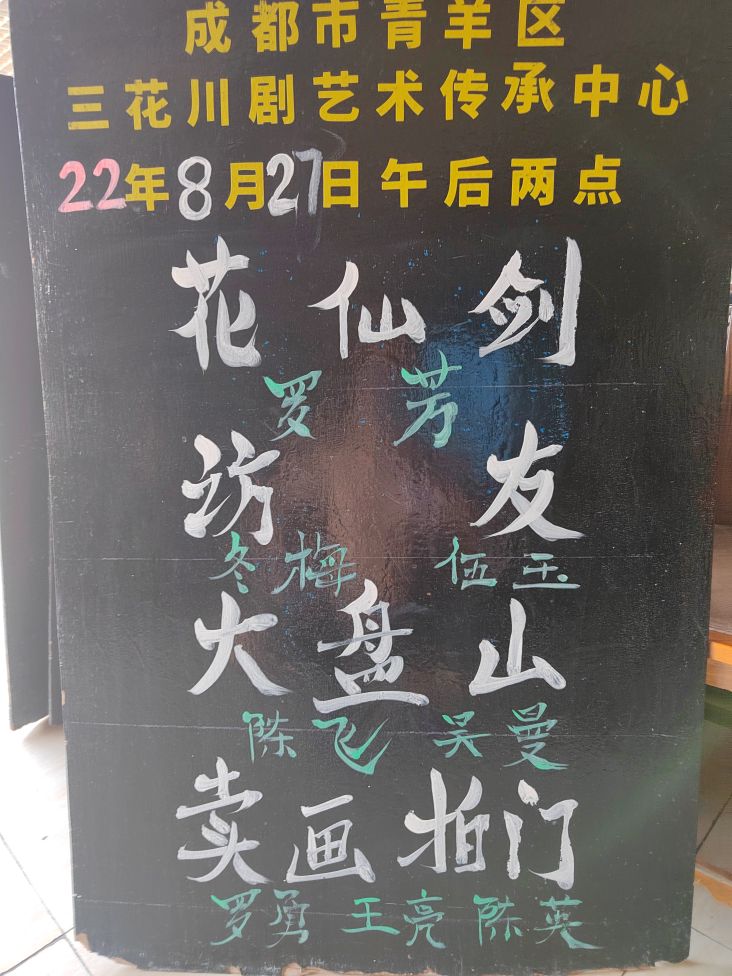 成都市青羊区
三花川剧艺术传承中心
22年8月27日午后两点
花仙剑
罗芳
访友
冬梅 伍玉
大盘山
陈飞 吴曼
卖画拍门
罗勇 王亮 陈英